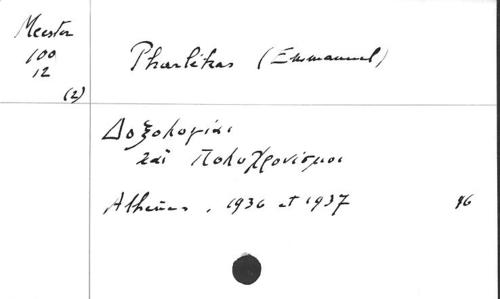 Meester
100
12
(2)
Pharlékas (Emmanuel)
Δοξολογίαι
καὶ Πολυχρονίσμοι
Athènes, 1936 et 1937 96